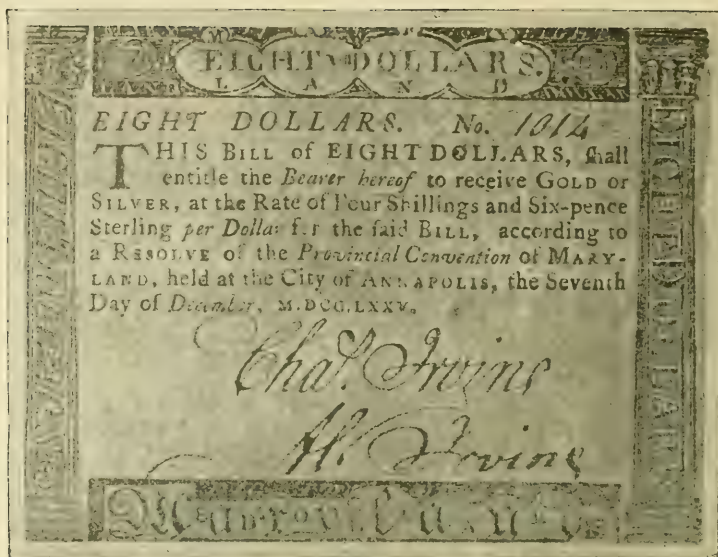 M A R Y
EIGHT DOLLARS.
L A N D
EIGHT DOLLARS. No. 1014
THIS BILL of EIGHT DOLLARS, ſhall
entitle the Bearer hereof to receive GOLD or
SILVER, at the Rate of Four Shillings and Six-pence
Sterling per Dollar for the ſaid BILL, according to
a RESOLVE of the Provincial Convention of MARY-
LAND, held at the City of ANNAPOLIS, the Seventh
Day of December, M.DCC.LXXV.
Chaſ. Irvine
Irvine